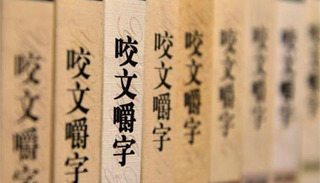 咬文嚼字
咬文嚼字
咬文嚼字
咬文嚼字
咬文嚼字
咬文嚼字
咬文嚼字